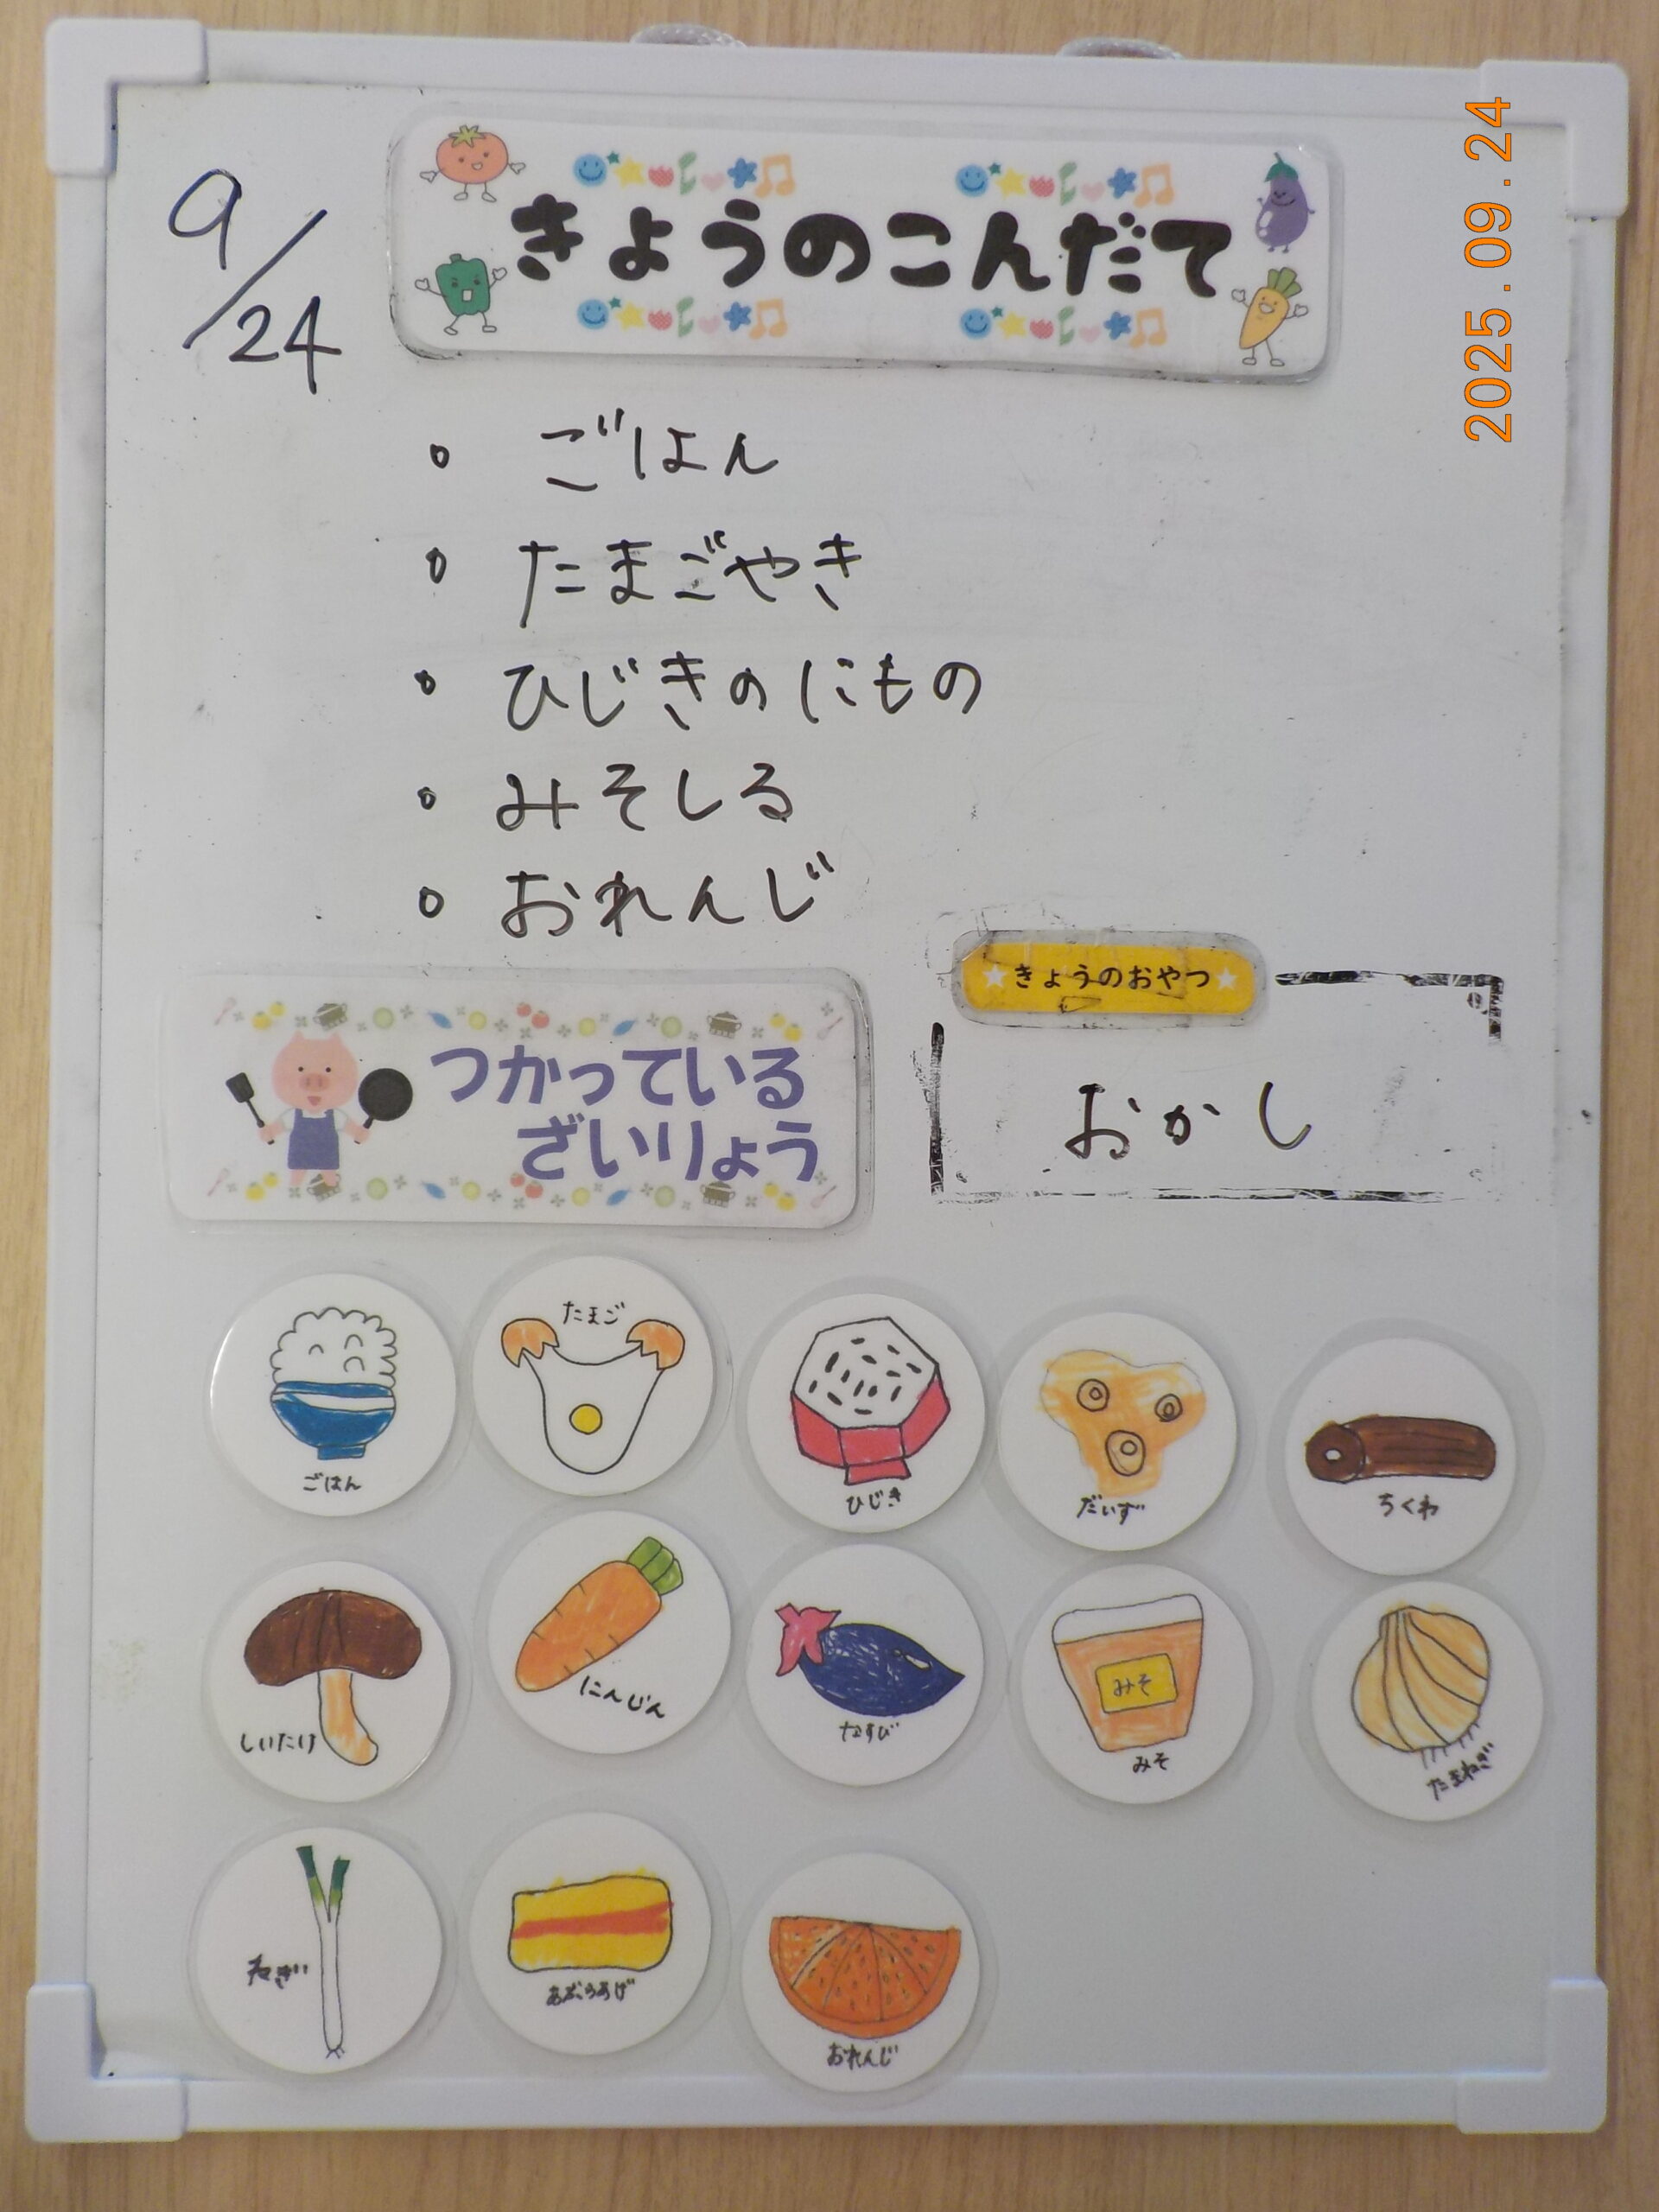 9/24
きょうのこんだて
2025.09.24
・ ごはん
・ たまごやき
・ ひじきのにもの
・ みそしる
・ おれんじ
きょうのおやつ
おかし
つかっている
ざいりょう
ごはん
たまご
ひじき
だいず
ちくわ
しいたけ
にんじん
なすび
みそ
みそ
たまねぎ
ねぎ
あぶらあげ
おれんじ